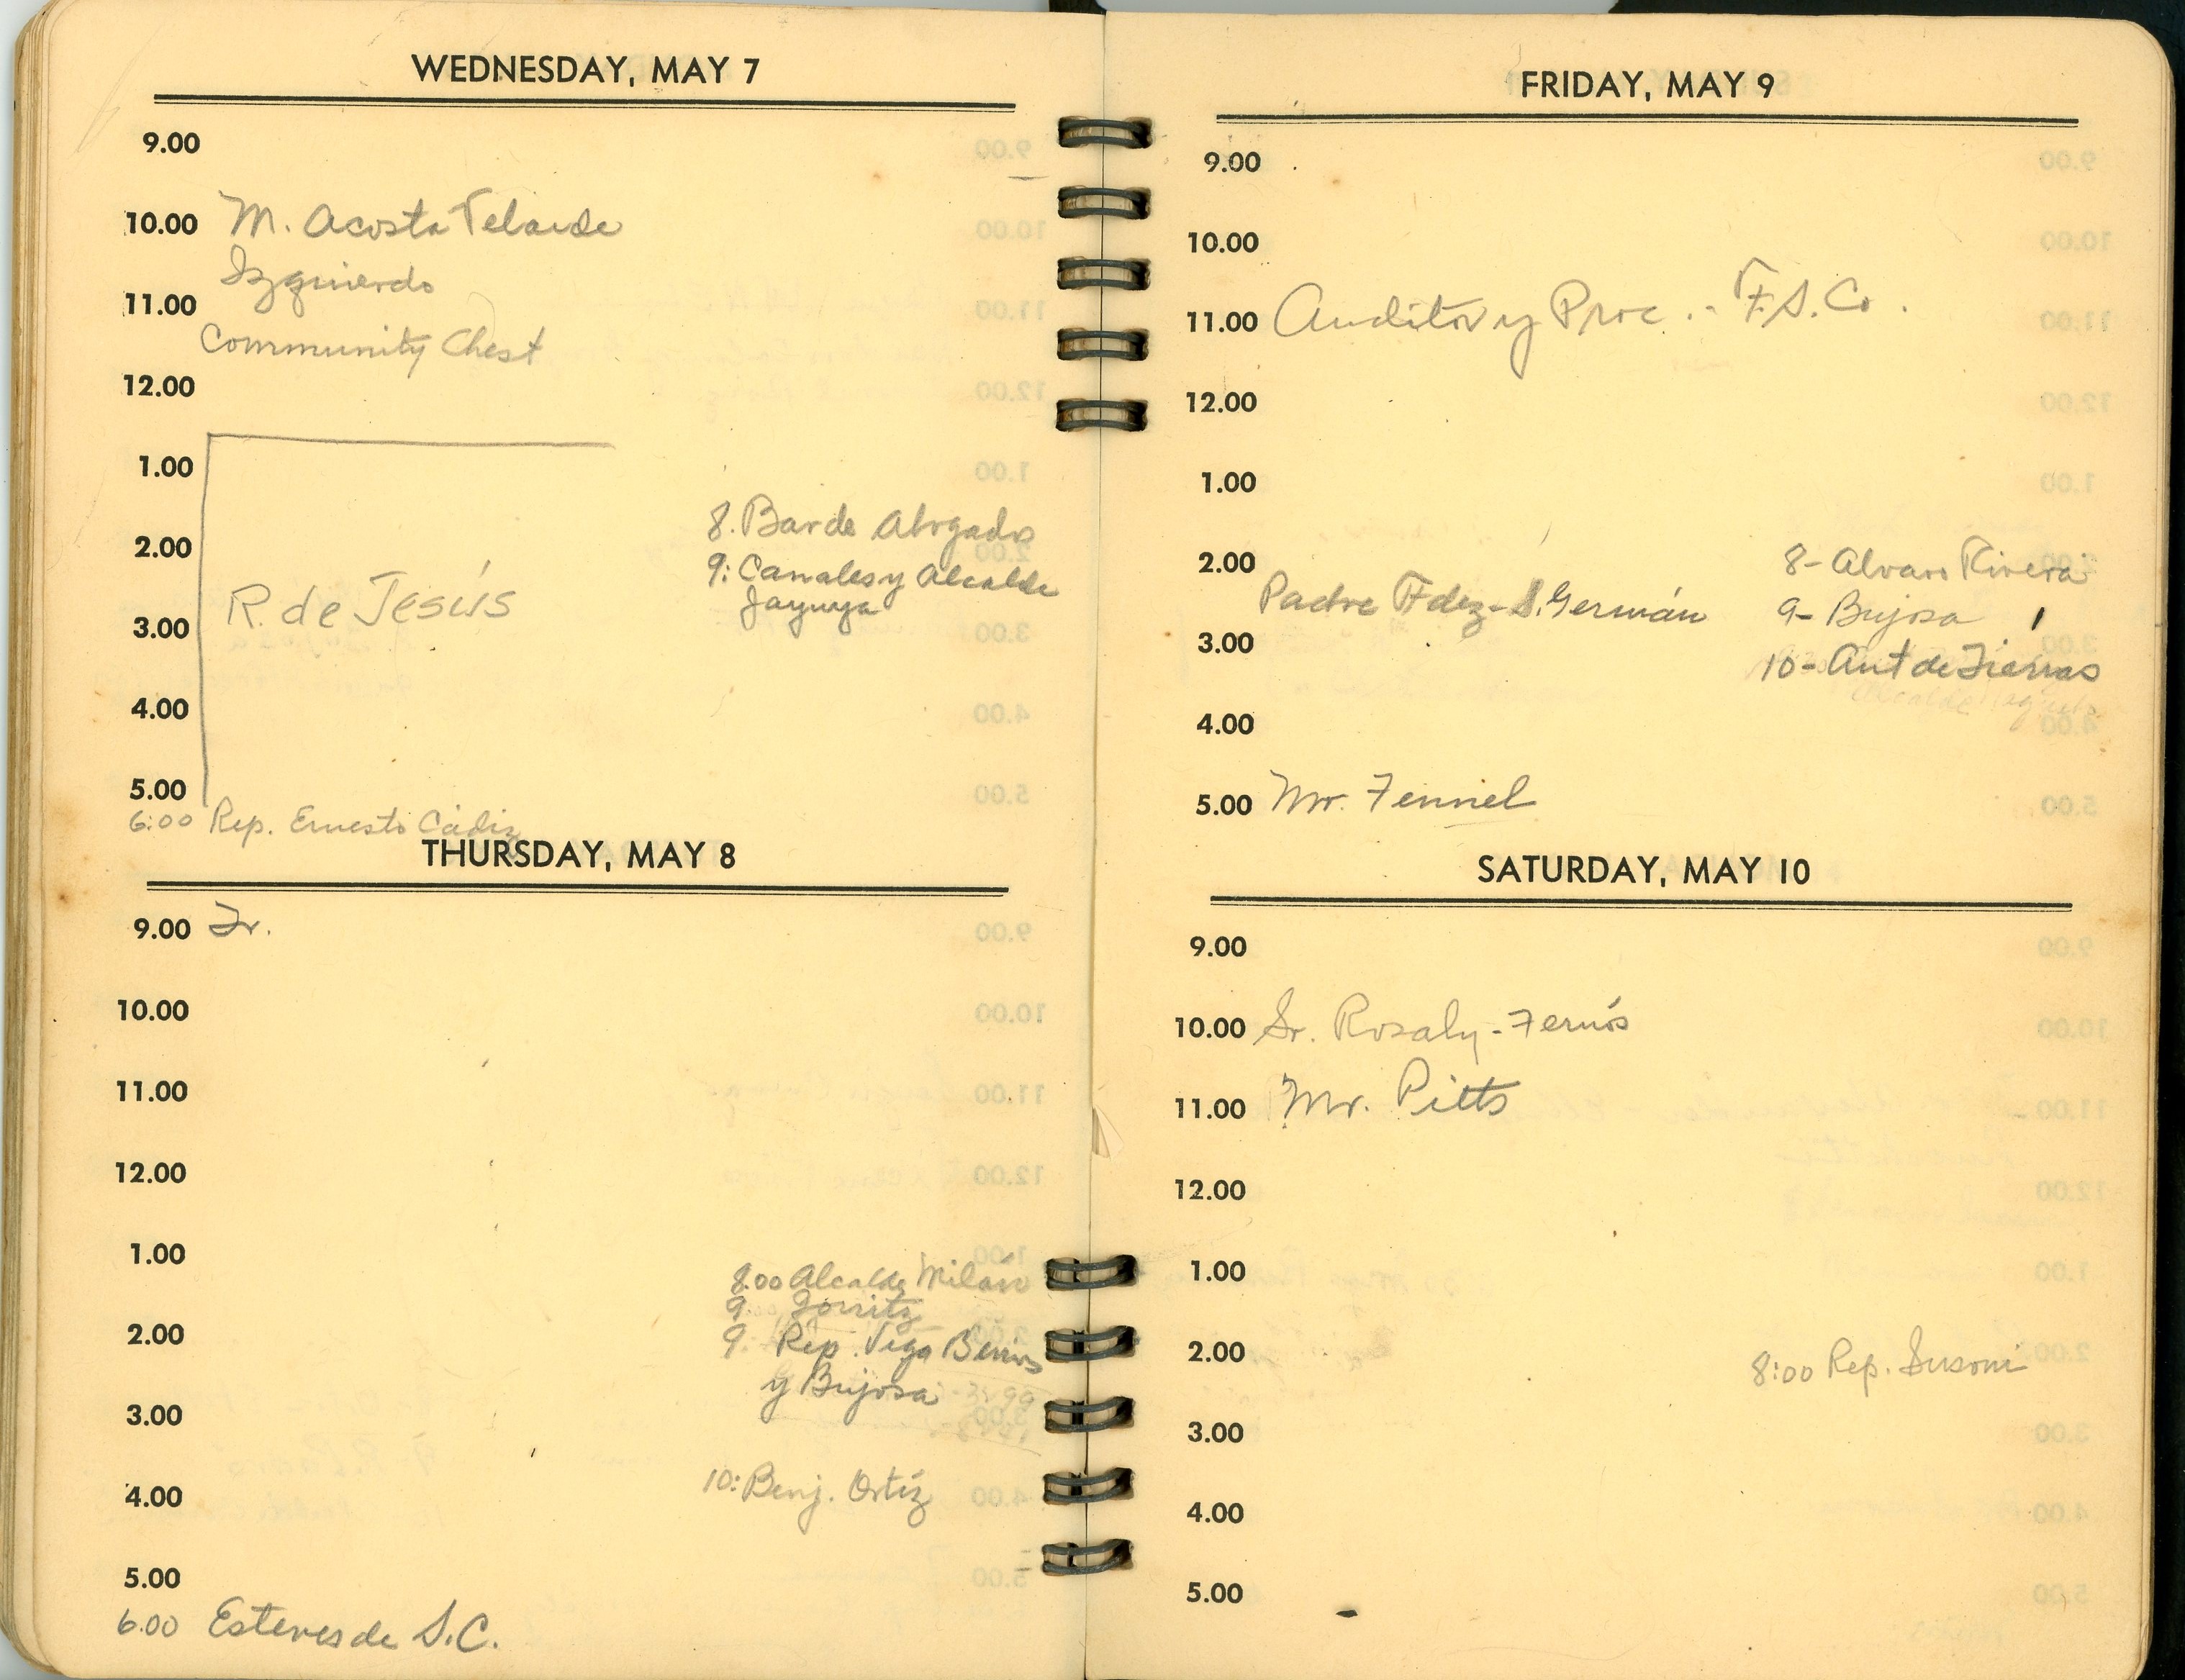 WEDNESDAY, MAY 7
9.00
10.00 M. Acosta Velarde
Izquierdo
11.00
Community Chest
12.00
1.00
2.00
R. de Jesús
3.00
4.00
5.00
6:00 Rep. Ernesto Cádiz
8. Bar de Abogado
9: Canales y Alcalde
Jayuya
THURSDAY, MAY 8
9.00 Fr.
10.00
11.00
12.00
1.00
2.00
3.00
4.00
5.00
6.00 Esteves de S.C.
8.00 Alcalde Milán
9
9. Rep. Vega Berrios
y Bujosa
10: Benj. Ortíz
FRIDAY, MAY 9
9.00
10.00
11.00 Auditor y Proc. - F.S.Co.
12.00
1.00
2.00
Padre Fdez - S. Germán
3.00
4.00
5.00 Mr. Fennel
8- Alvaro Rivera
9- Bujosa
10- Aut de Tierras
Alcalde
SATURDAY, MAY 10
9.00
10.00 Sr. Rosaly - Fernós
11.00 Mr. Pitts
12.00
1.00
2.00
8:00 Rep. Susoni
3.00
4.00
5.00